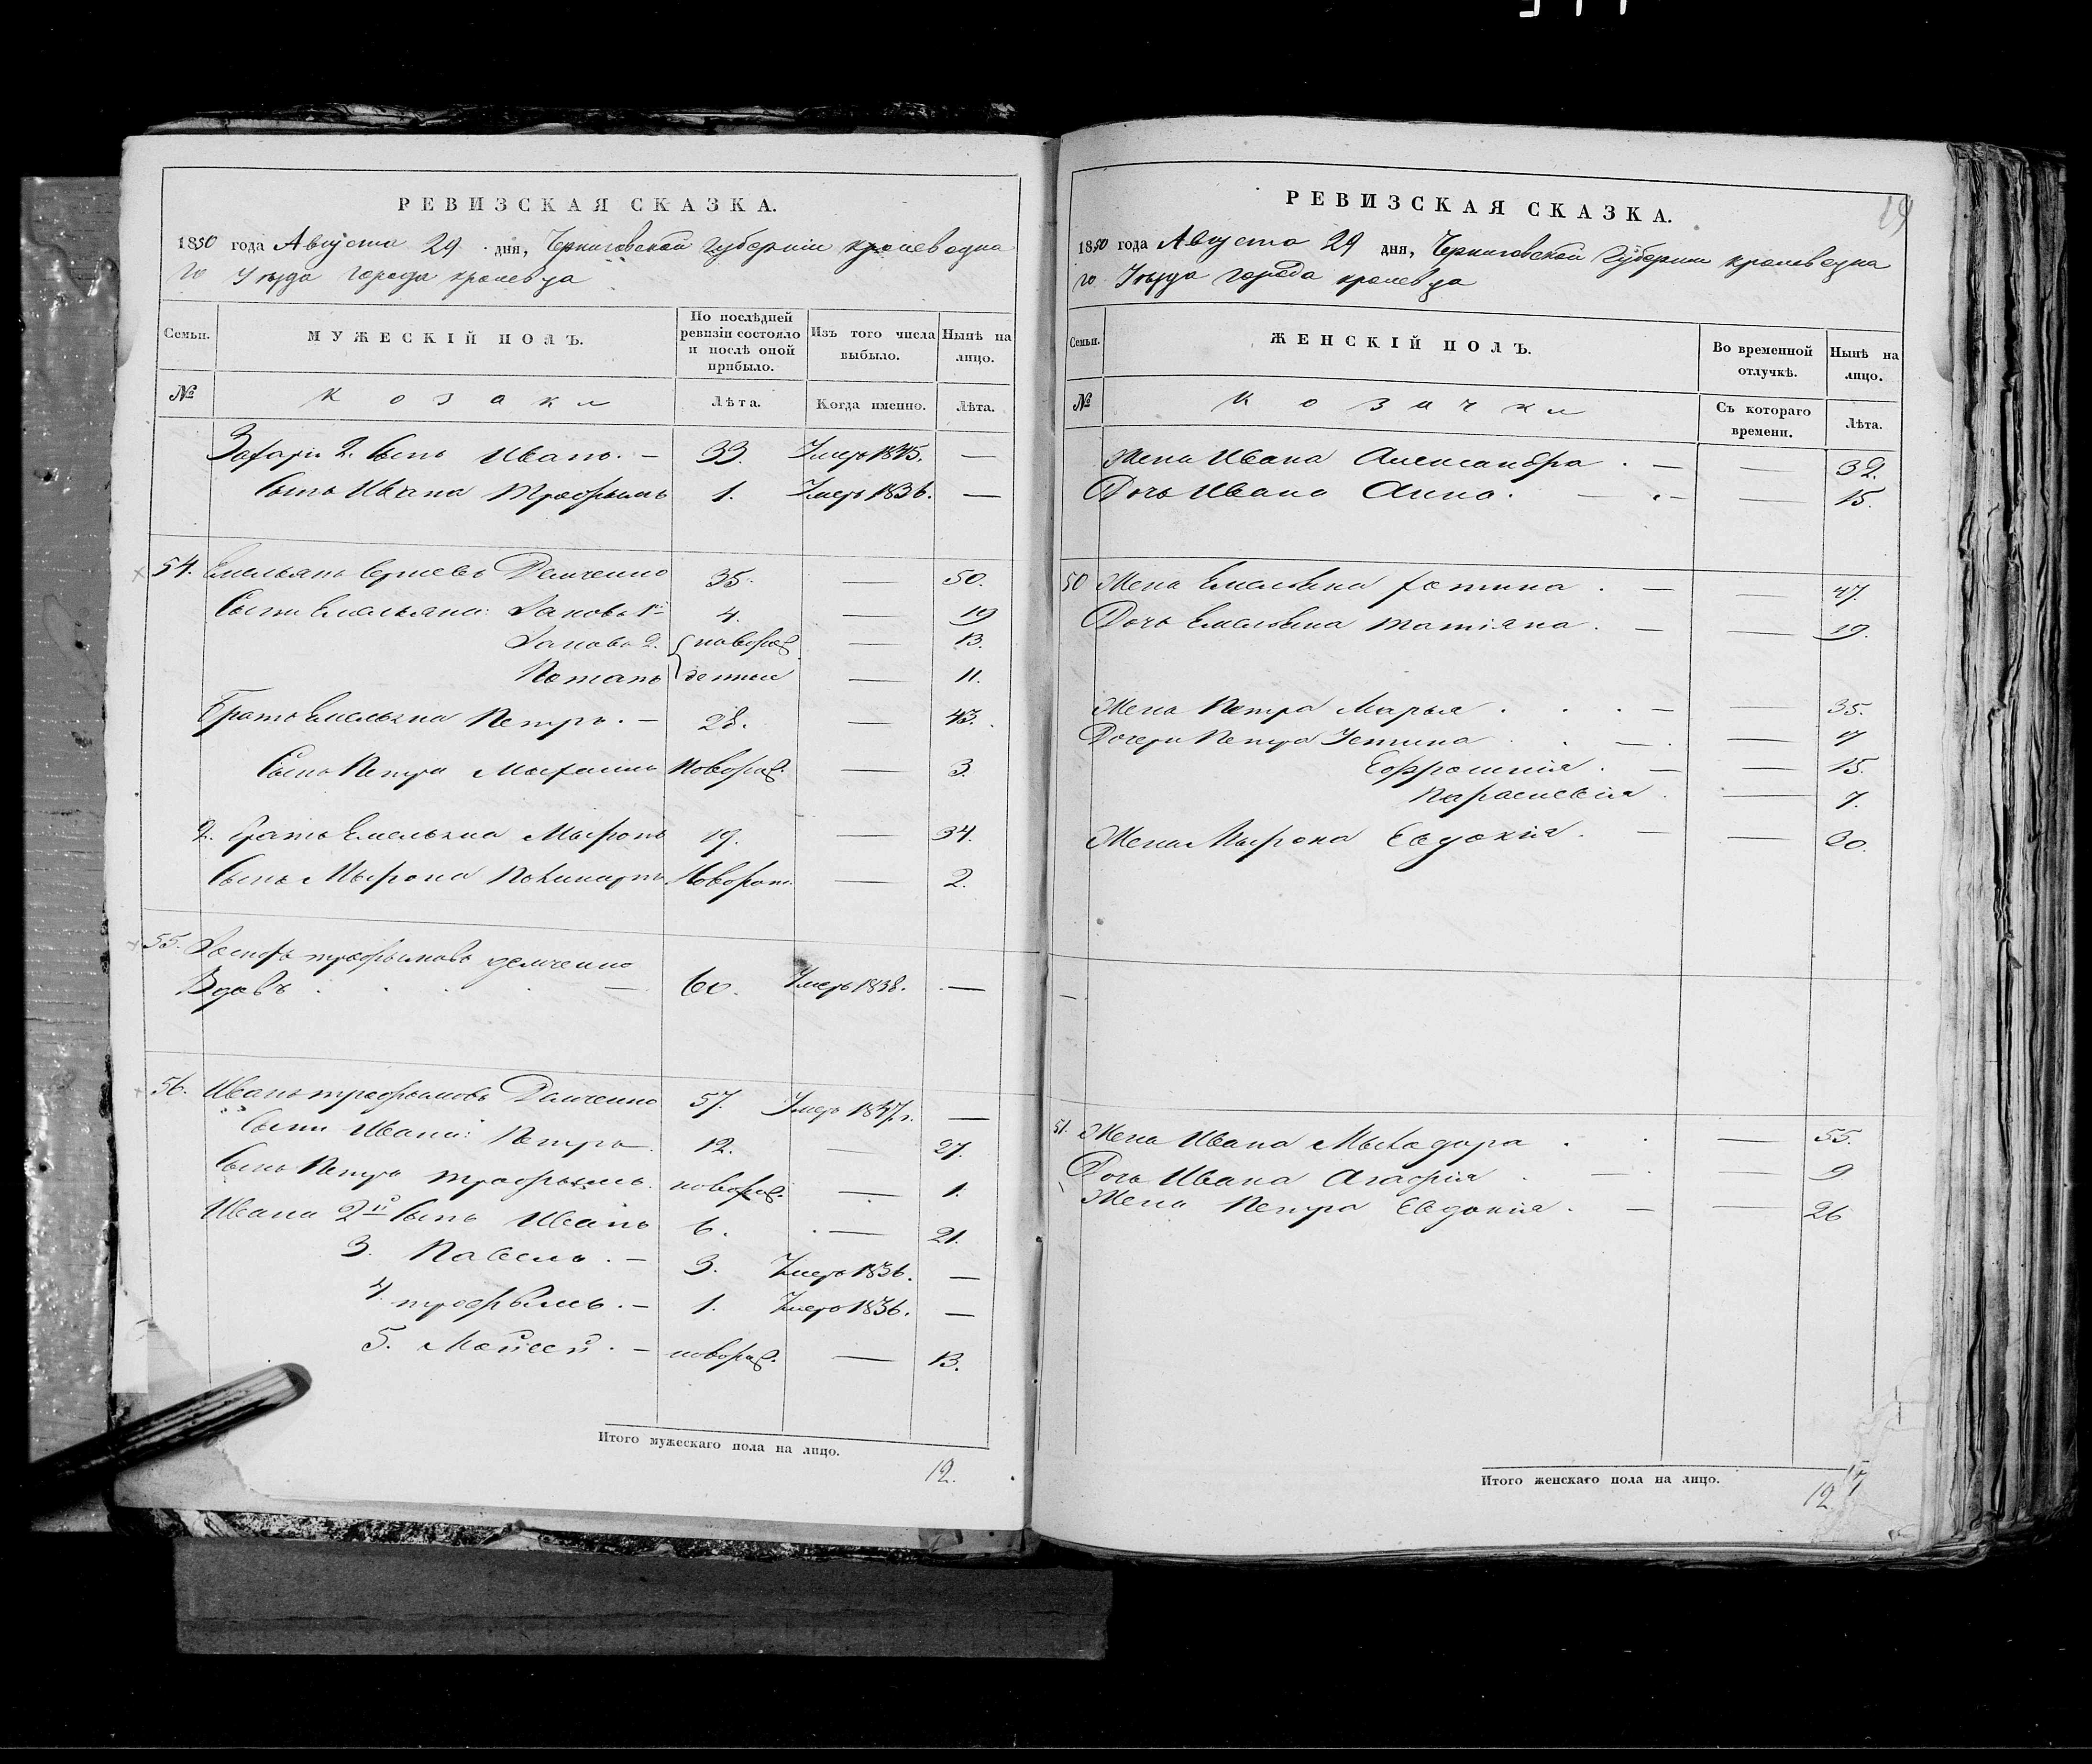 РЕВИЗСКАЯ СКАЗКА.
1850 года Августа 29 дня, Черниговской губерніи кролевецка
го Уезда города кролевца
Семьи.
МУЖЕСКІЙ ПОЛЪ.
По послѣдней ревизіи состояло и послѣ оной прибыло.
Изъ того числа выбыло.
Нынѣ на лицо.
№
козаки
Лѣта.
Когда именно.
Лѣта.
Захаріи 2. сынъ Иванъ. — 33. Умеръ 1845. —
Сынъ Ивана Трофымъ 1. Умеръ 1836. —
54. Емельянъ Демченко 35. — 50.
Сыны Емельяна: Яковъ 1й 4. — 19
Яковъ 2. новорож — 13.
Потапъ денные — 11.
Братъ Емельяна Петръ. — 28. — 43.
Сынъ Петра Новорож. — 3.
2. братъ Емельяна Мыронъ 19. — 34.
Сынъ Мырона Новорож. — 2.
55. трофымовъ демченко
Вдовъ — 60. Умеръ 1838. —
56. Иванъ трофымовъ Демченко 57. Умеръ 1847. —
Сыны Ивана: Петръ 12. — 27.
Сынъ Петра трофымъ. новорож. — 1.
Ивана 2й сынъ Иванъ 6. — 21.
3. Павелъ. — 3. Умеръ 1836. —
4. трофымъ. — 1. Умеръ 1836. —
5. Мойсей. — новорож. — 13.
Итого мужескаго пола на лицо.
12.
19
РЕВИЗСКАЯ СКАЗКА.
1850 года Августа 29 дня, Черниговской Губерніи кролевецка
го Уезда города кролевца
Семьи.
ЖЕНСКІЙ ПОЛЪ.
Во временной отлучкѣ.
Нынѣ на лицо.
№
козачки
Съ котораго времени.
Лѣта.
Жена Ивана Александра. — — 32.
Дочь Ивана Анна. — — 15.
50 Жена Емельяна фотина. — — 47.
Дочь Емельяна татіяна. — — 19.
Жена Петра Марья . . . — — 35.
Дочери Петра Устина . — — 17
Ефросинія. — — 15.
Параскевія. — 7.
Жена Мырона Евдокія. — — 20.
—
51. Жена Ивана . — 55.
Дочь Ивана Агафія . — — 9
Жена Петра Евдокія. — — 26
Итого женскаго пола на лицо.
12